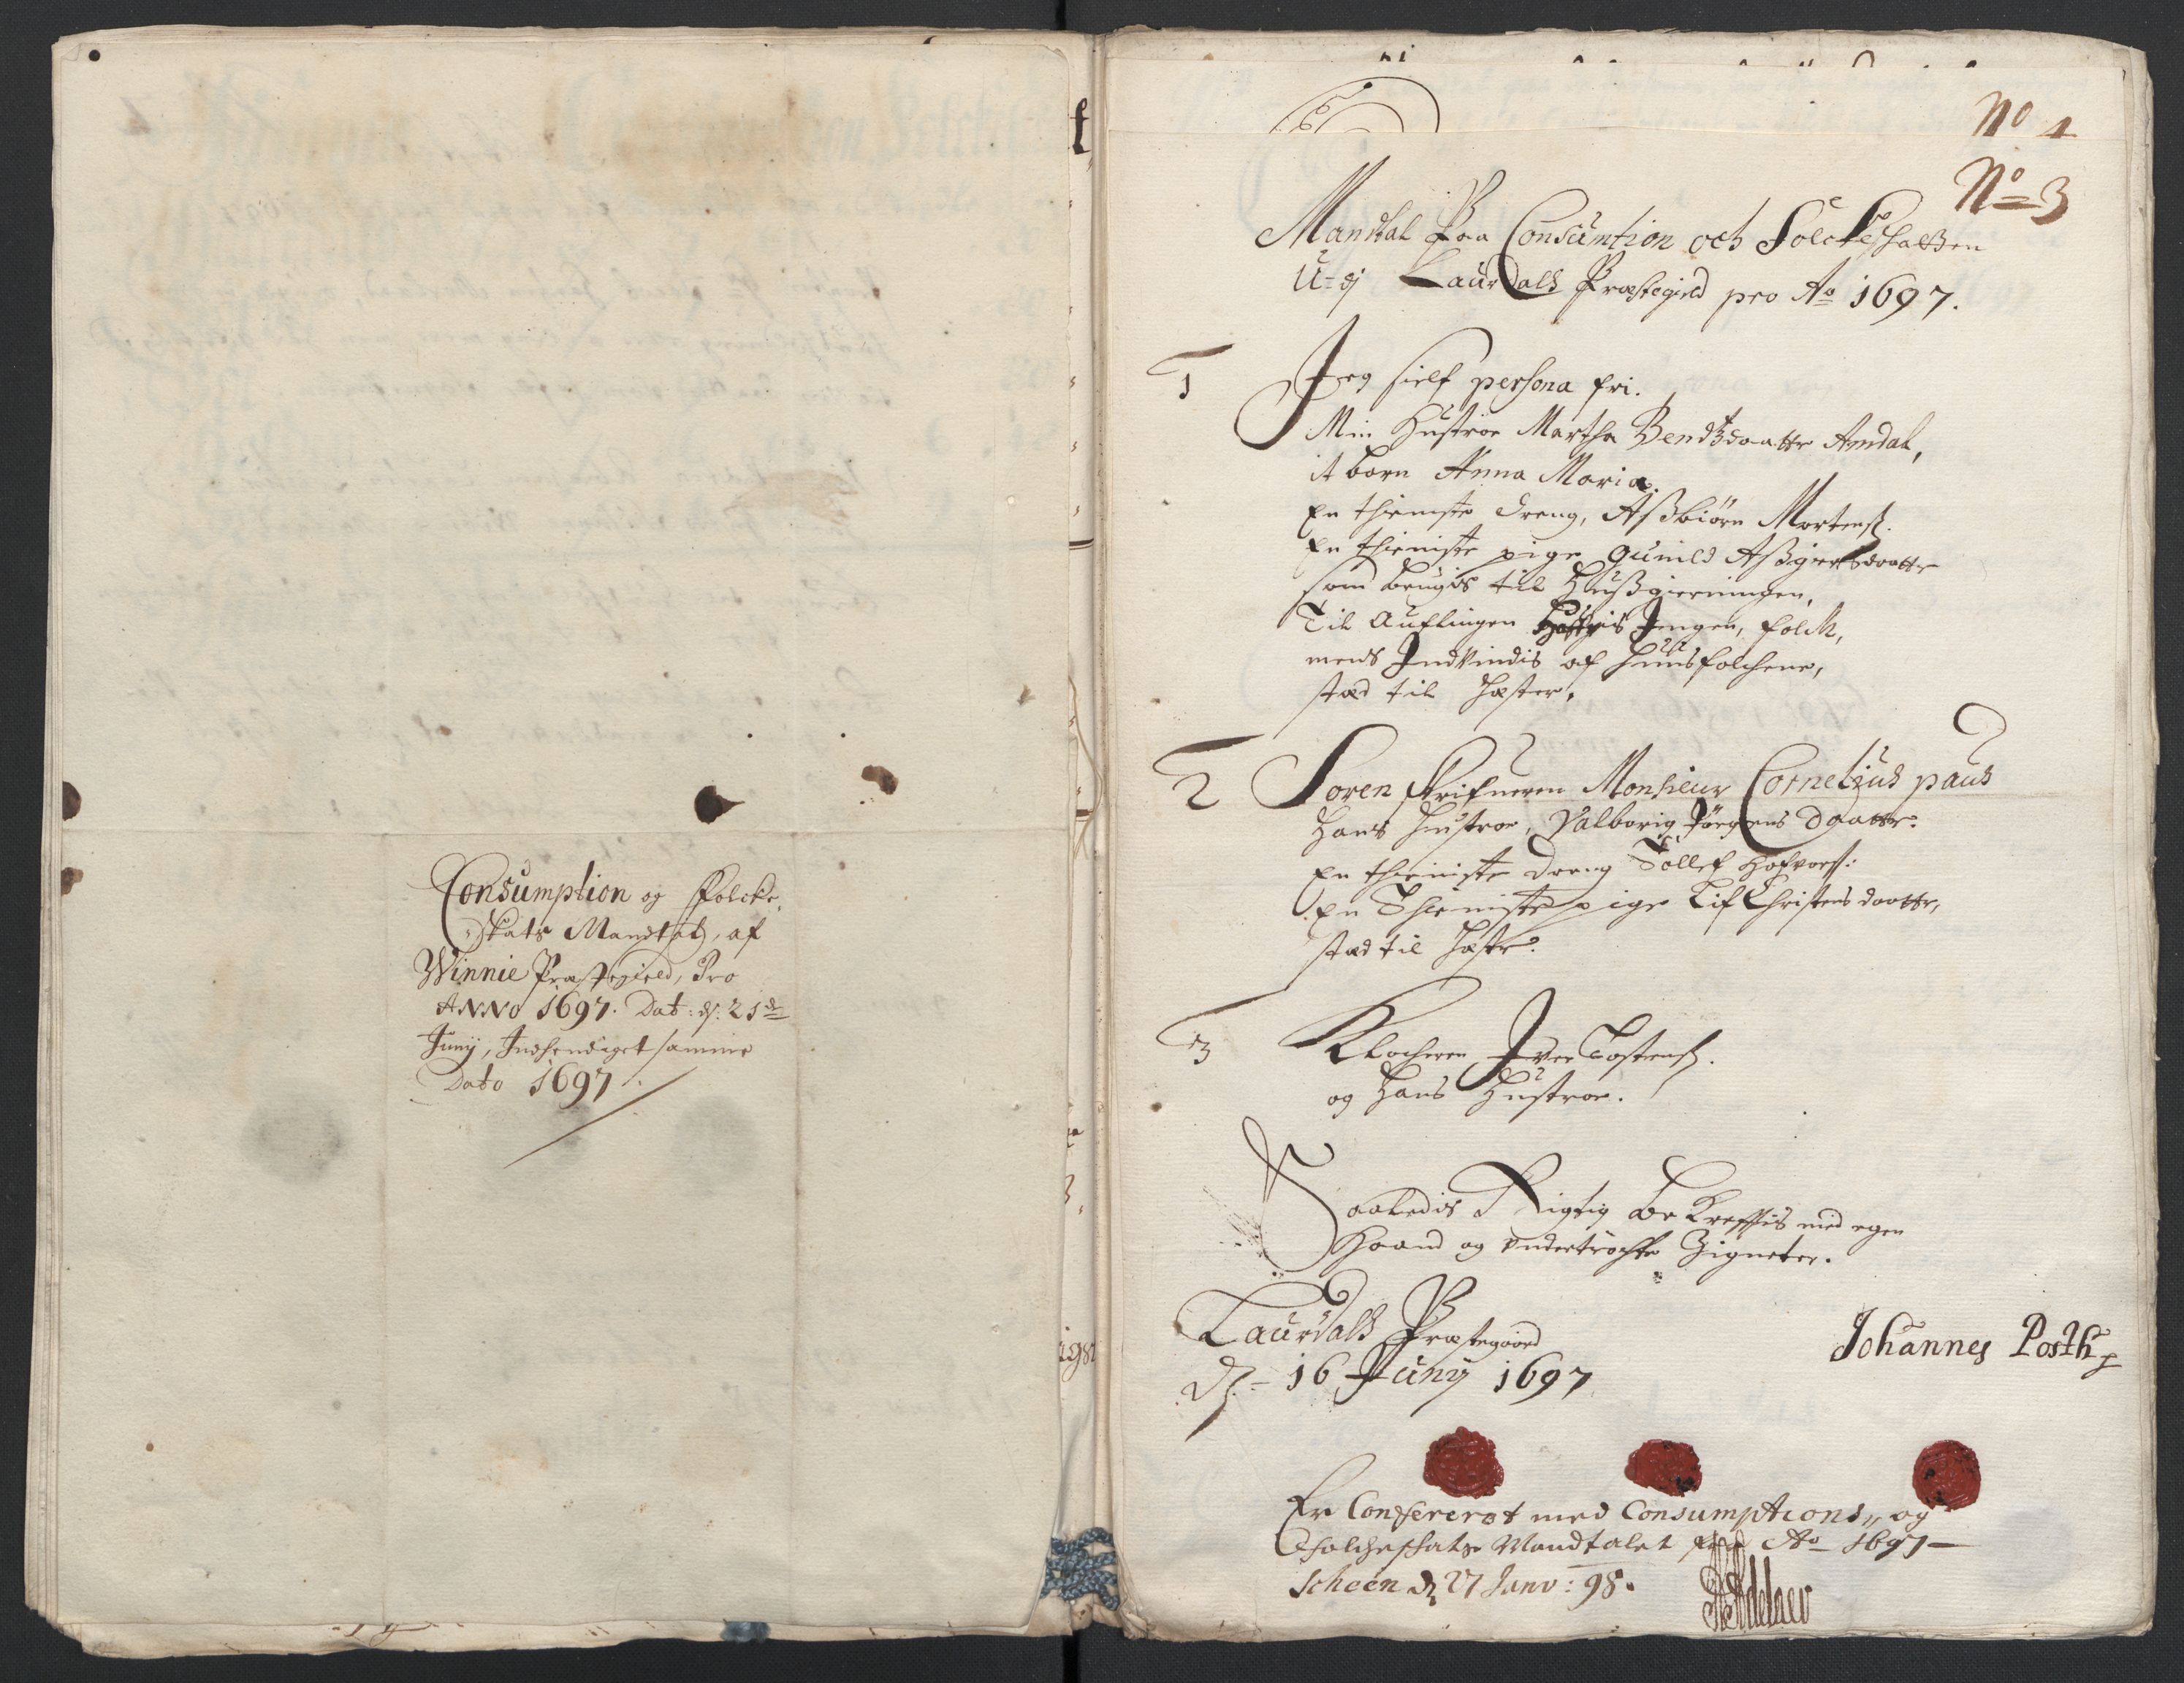 Consumption og Folcke
Skats Mandtahl, af
Winnie Præstegield, Pro
ANNO 1697. Dat: d: 21de
Junij, Indhendiget samme
Dato 1697.
No 1
No 3
Mandtal Paa Consumtion och Folcke Skatten
U-di Laurdals Præstegield pro Ao 1697.
1 Jeg sielf persona fri.
Min Hustroe Martha Bendtzdaatter Arndal,
it barn Anna Maria.
En thieniste dreng, Aßbiørn Mortenß.
En thieniste pige Gunild Aßgiersdaatter
som brugis til Hußgierningen,
Til Auflingen Jngen, folck,
mens Indvindis af huusfolchene,
stæd til Hæster.
2 Soren skrifueren Monsieur Cornelius paus
Hans Hustroe, Valborig Jørgens daatter.
En thieniste dreng Tollef Hofvorß:
En Thieniste pige Lif Christens daatter,
stæd til Hæster.
3 Klocheren Jver Tostenß.
og Hans Hustroe.
Saaledis Rigtig be kreftis med egen
Haand og undertrøchte Zigneter.
Laurdals Præstegaard
d: 16 Juny 1697
Johannes Posth
Er Confereret med Consumptions, og
Folcheskats Mandtalet for Ao 1697
Scheen d 27 Janv: 98.
Adelaer